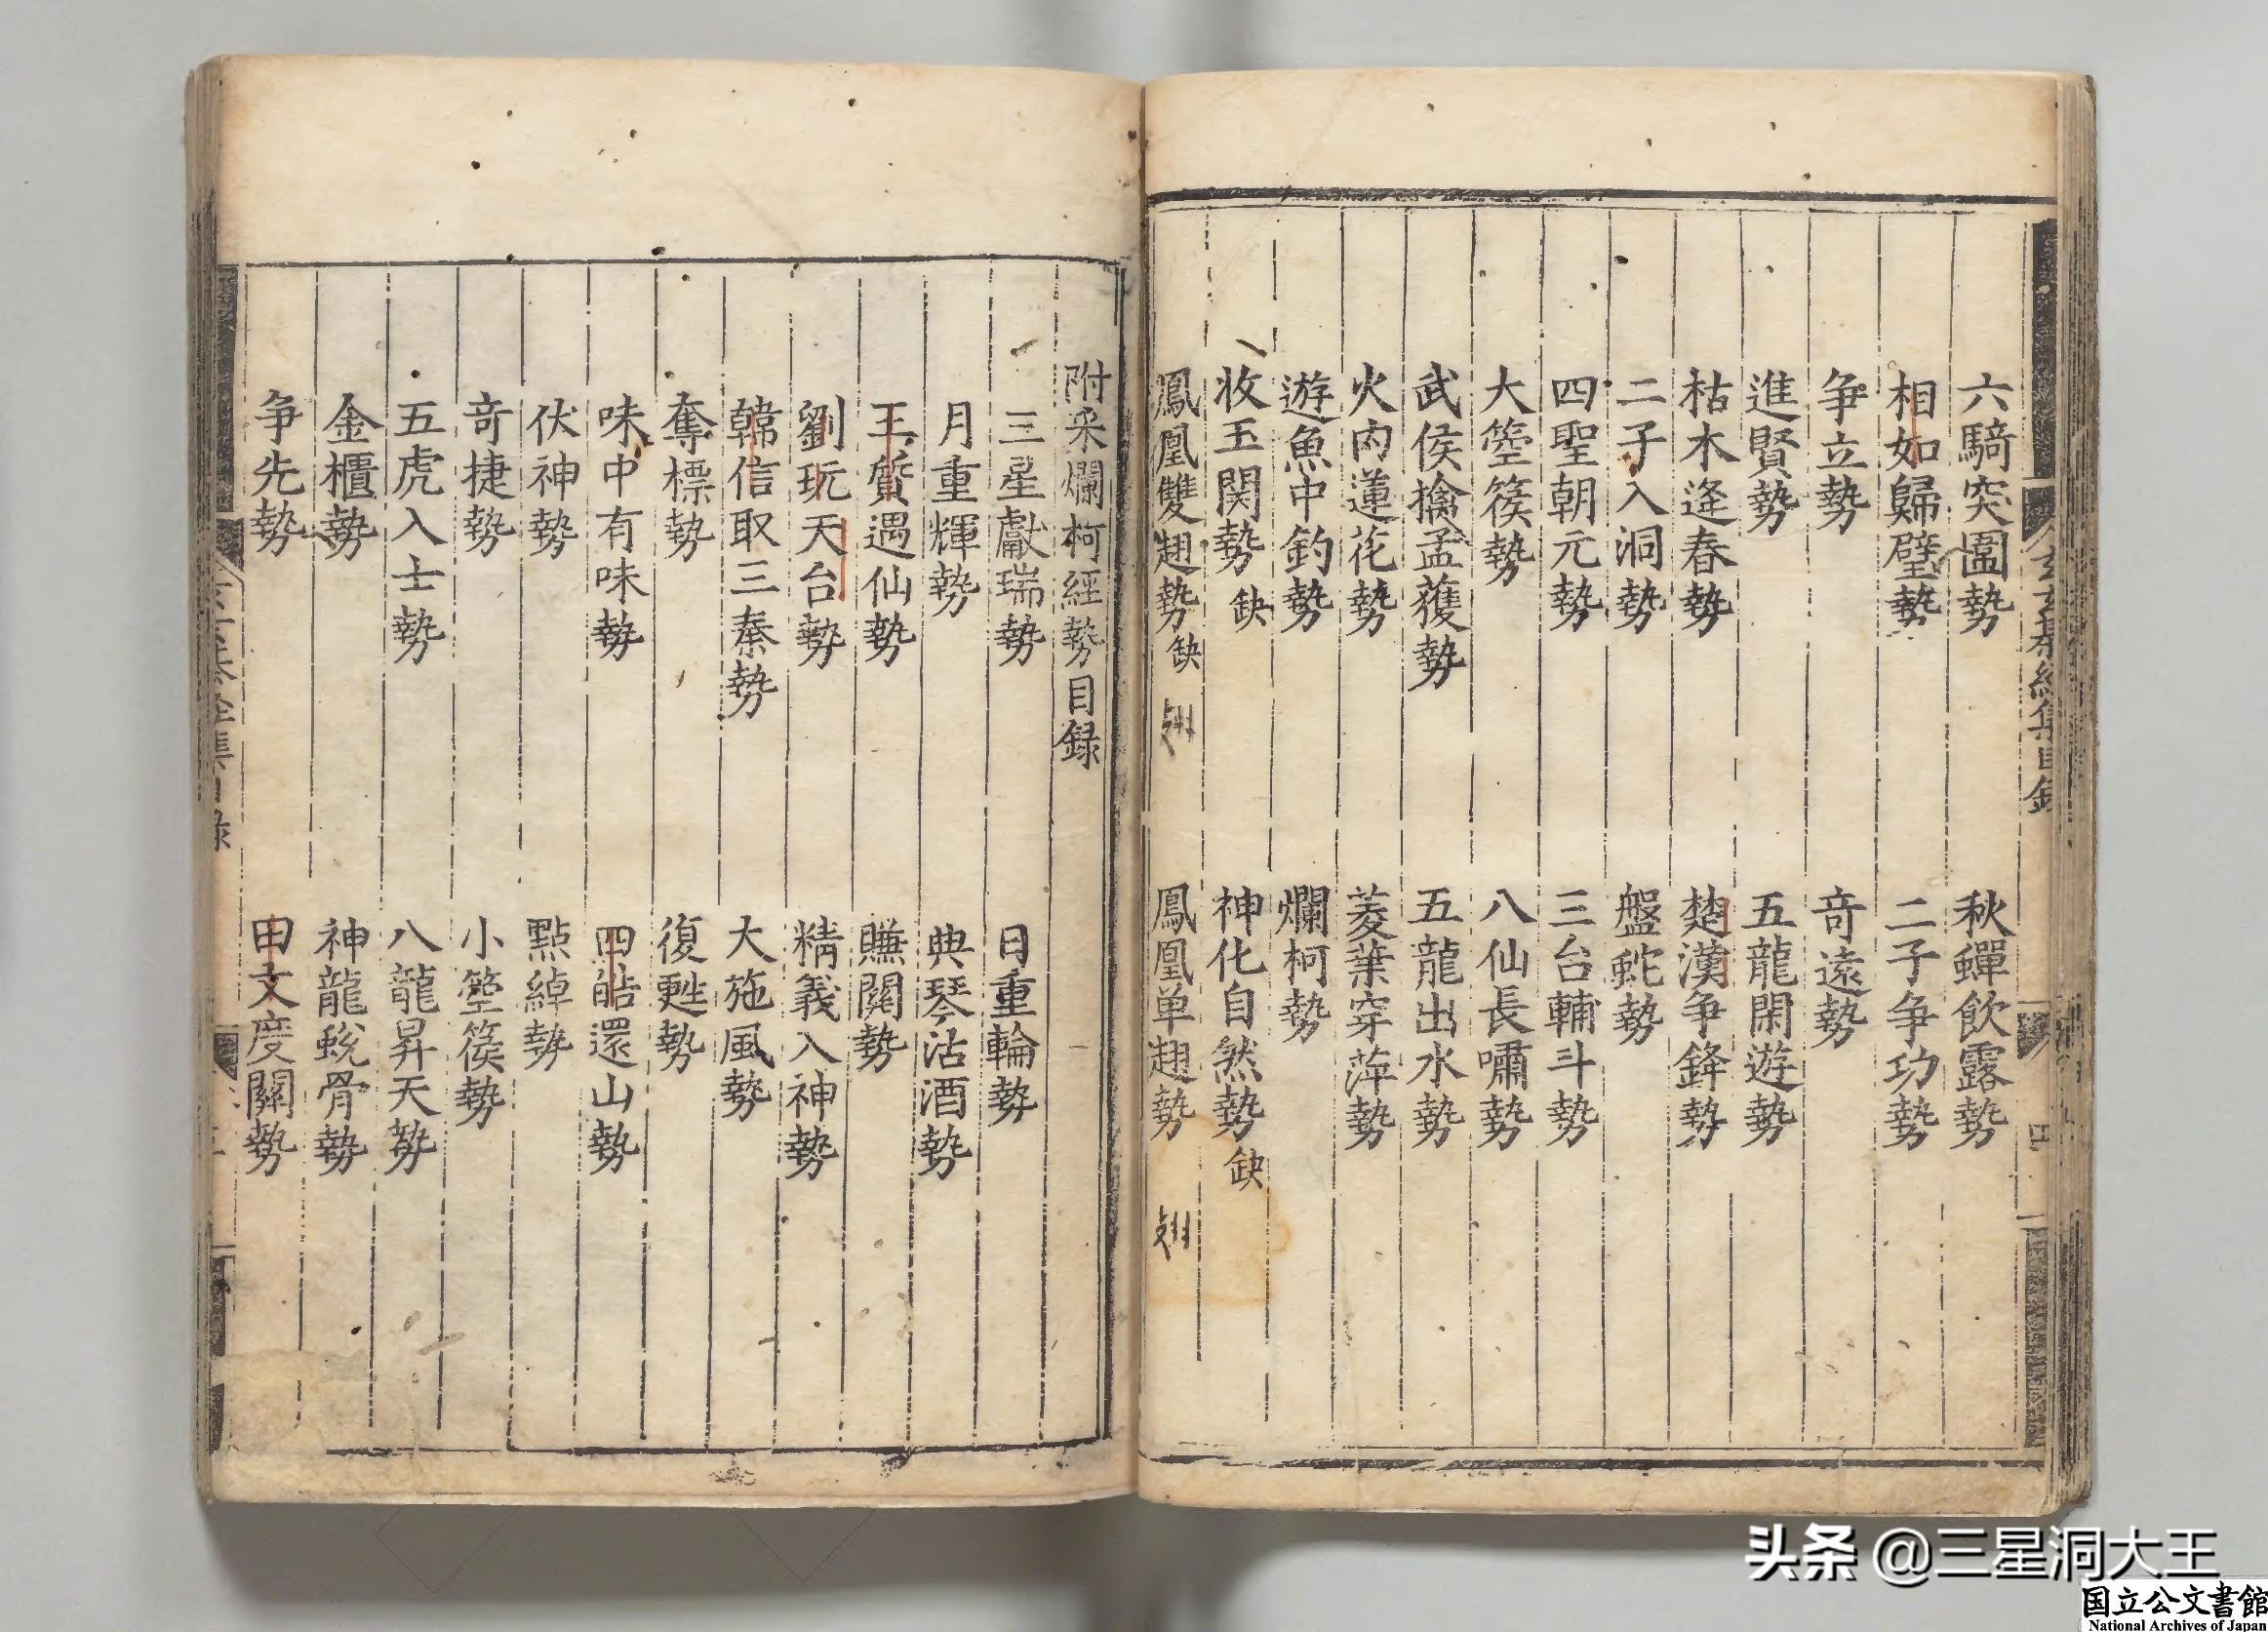 六騎突圍勢 秋蟬飲露勢
相如歸璧勢 二子争功勢
争立勢 竒遠勢
進賢勢 五龍閑遊勢
枯木逢春勢 楚漢争鋒勢
二子入洞勢 盤蛇勢
四聖朝元勢 三台輔斗勢
大箜篌勢 八仙長嘯勢
武侯擒孟獲勢 五龍出水勢
火内蓮花勢 菱葉穿萍勢
遊魚中釣勢 爛柯勢
收玉関勢 缺 神化自然勢 缺
鳳凰雙翅勢 缺 鳳凰单翅勢
附采爛柯經勢目録
三星獻瑞勢 日重輪勢
月重輝勢 典琴沽酒勢
王質遇仙勢 賺關勢
劉玩天台勢 精義入神勢
韓信取三秦勢 大施風勢
奪標勢 復甦勢
味中有味勢 四皓還山勢
伏神勢 點綽勢
竒捷勢 小箜篌勢
五虎入士勢 八龍昇天勢
金櫃勢 神龍蛻骨勢
争先勢 田文度關勢
头条 @三星洞大王
国立公文書館
National Archives of Japan